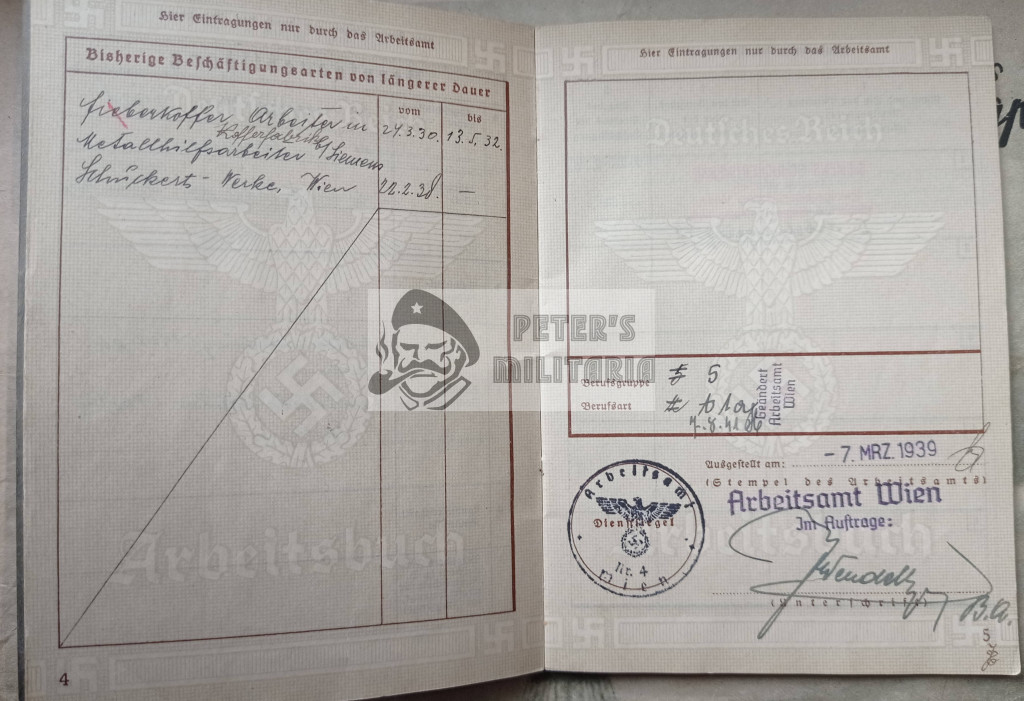 Hier Eintragungen nur durch das Arbeitsamt
Bisherige Beschäftigungsarten von längerer Dauer
vom
bis
Arbeiter in
24.3.30. 13.5.32.
Kofferfabrik
Metallhilfsarbeiter b/ Siemens
Schuckert-Werke, Wien 22.2.38. —
4
Hier Eintragungen nur durch das Arbeitsamt
Deutsches Reich
PETER'S
MILITARIA
Berufsgruppe 5
Berufsart
Geändert
Arbeitsamt
Wien
Ausgestellt am: - 7. MRZ. 1939
(Stempel des Arbeitsamts)
Arbeitsamt Wien
Im Auftrage:
Arbeitsamt
Dienstsiegel
Nr. 4
Wien
Arbeitsbuch
Arbeitsbuch
(Unterschrift)
5